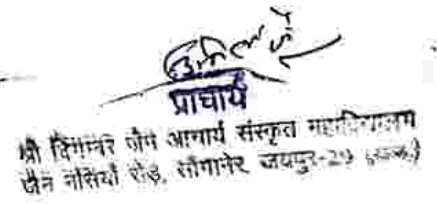 प्राचार्य
श्री दिगम्बर जैन आचार्य संस्कृत महाविद्यालय
जैन नसियाँ रोड़, सांगानेर जयपुर-29 (राज.)